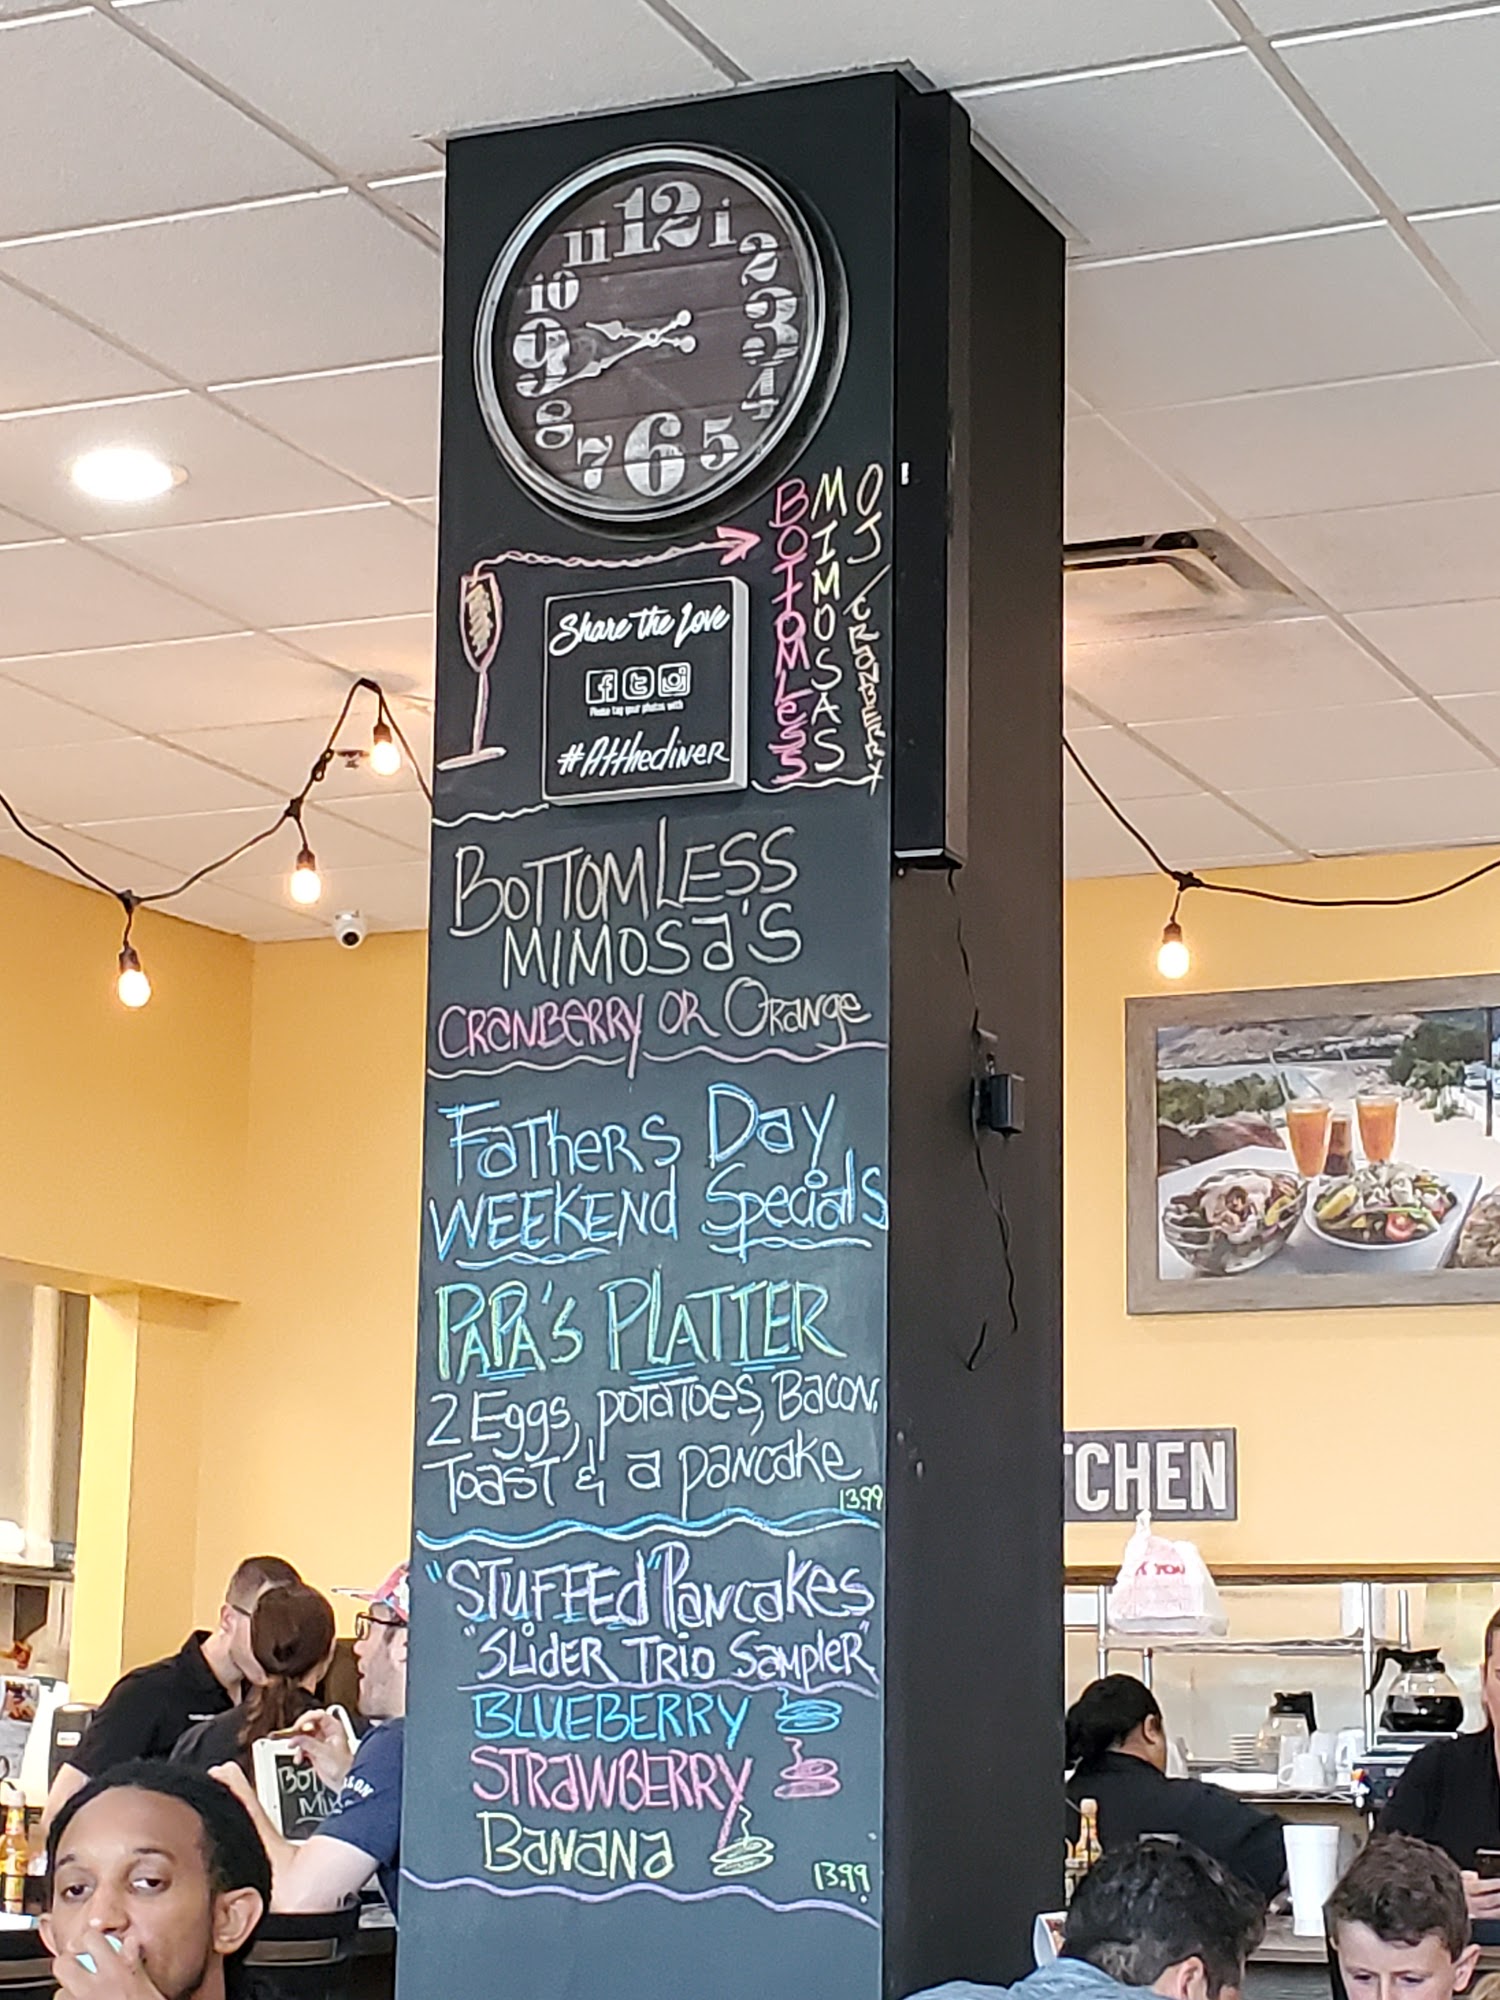 11 12 1
10 2
9 3
8 4
7 6 5
BOTTOMLESS
MIMOSAS
OJ/CRANBERRY
Share the Love
Please tag your photos with
#Atthediner
BOTTOMLESS
MIMOSa'S
CRANBERRY OR ORange
FaTheRS Day
WEEKENd Specials
PAPA's PLATTER
2 Eggs, potatoes, Bacon,
Toast & a pancake
13.99
"STUFFEd" Pancakes
"SLidER TRiO SampleR"
BLUEBERRY
STRaWBERRY
BaNaNa
13.99
TCHEN
K YOU